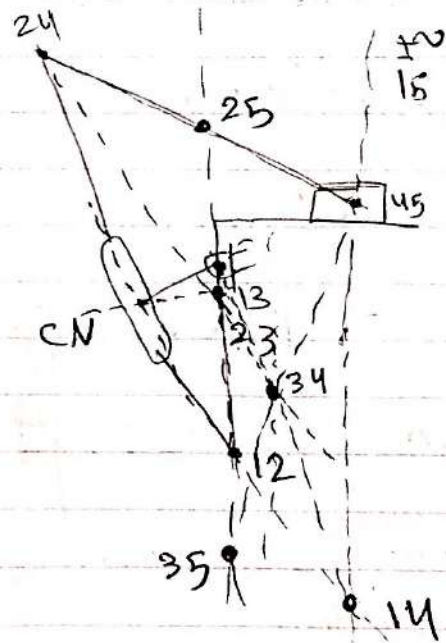 24
25
15
45
CN
13
23
34
12
35
14